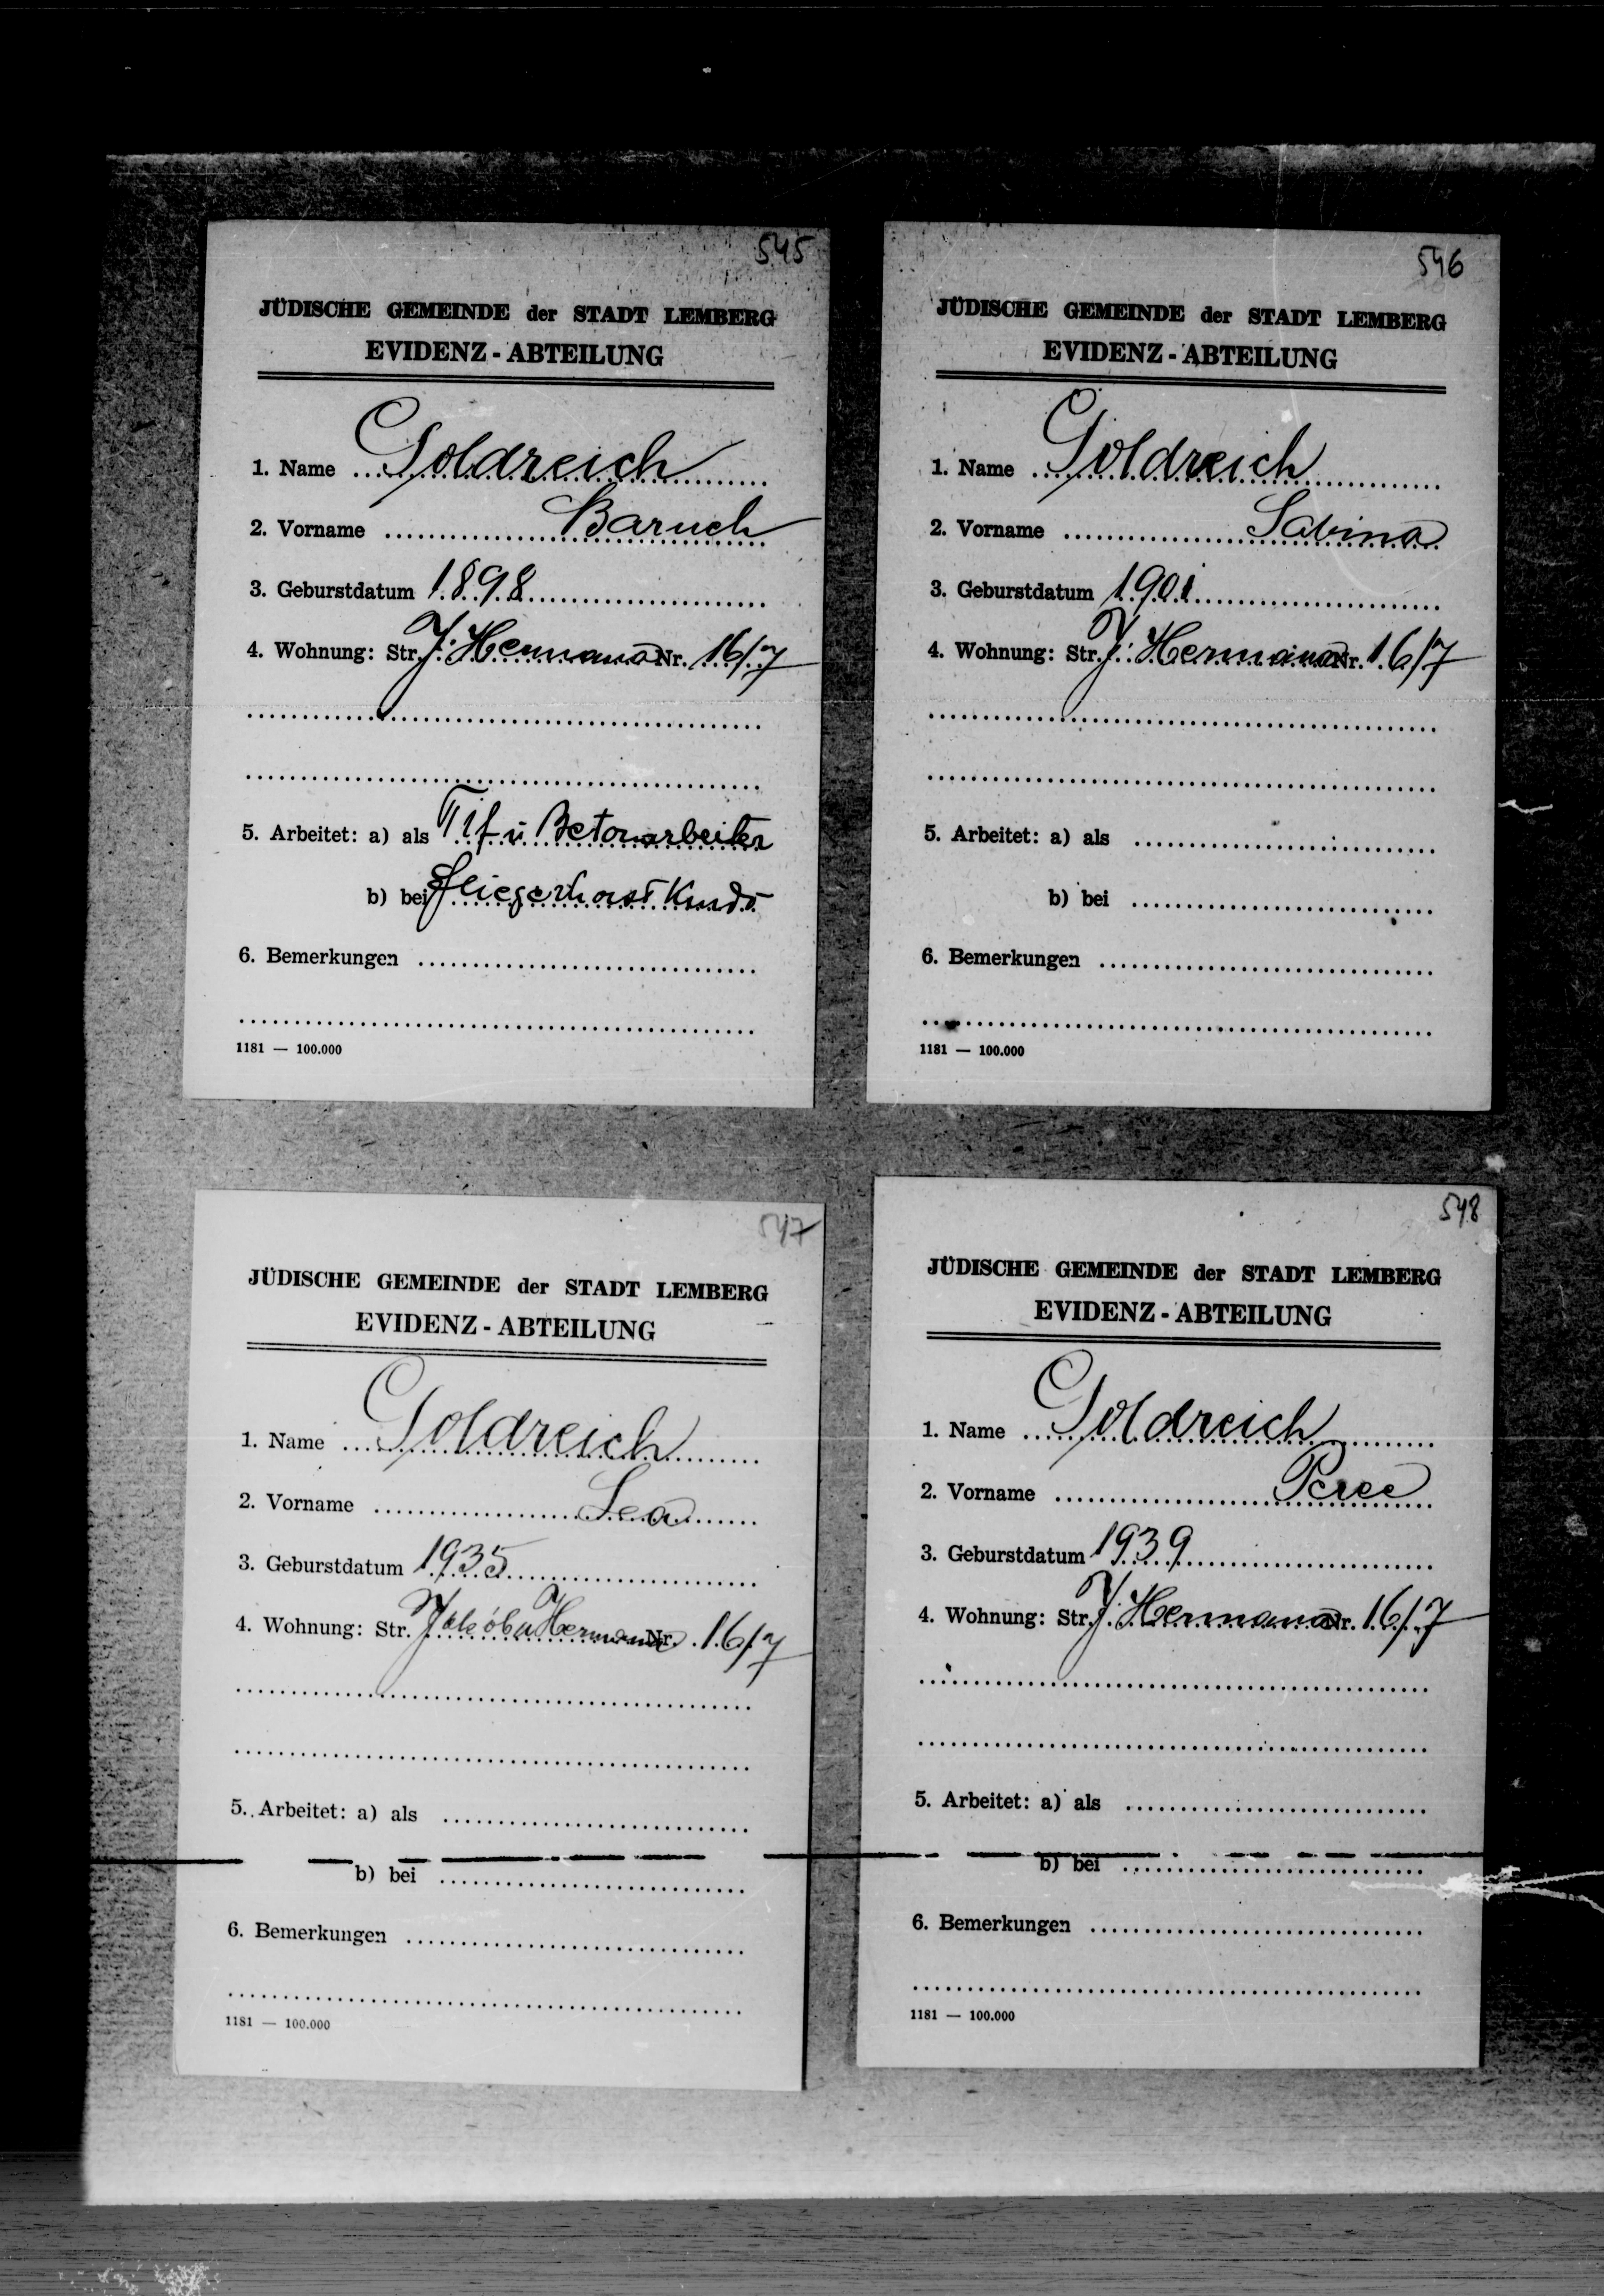 545
JÜDISCHE GEMEINDE der STADT LEMBERG
EVIDENZ - ABTEILUNG
1. Name Goldreich
2. Vorname Baruch
3. Geburstdatum 1898
4. Wohnung: Str. J. Hermana Nr. 16/7
5. Arbeitet: a) als Tif u Betonarbeiter
b) bei Fliegerhorst
6. Bemerkungen
1181 — 100.000
546
JÜDISCHE GEMEINDE der STADT LEMBERG
EVIDENZ - ABTEILUNG
1. Name Goldreich
2. Vorname Sabina
3. Geburstdatum 1901
4. Wohnung: Str. J. Hermana Nr. 16/7
5. Arbeitet: a) als
b) bei
6. Bemerkungen
1181 — 100.000
547
JÜDISCHE GEMEINDE der STADT LEMBERG
EVIDENZ - ABTEILUNG
1. Name Goldreich
2. Vorname Lea
3. Geburstdatum 1935
4. Wohnung: Str. Jakóba Hermana Nr. 16/7
5. Arbeitet: a) als
b) bei
6. Bemerkungen
1181 — 100.000
548
JÜDISCHE GEMEINDE der STADT LEMBERG
EVIDENZ - ABTEILUNG
1. Name Goldreich
2. Vorname
3. Geburstdatum 1939
4. Wohnung: Str. J. Hermana Nr. 16/7
5. Arbeitet: a) als
b) bei
6. Bemerkungen
1181 — 100.000